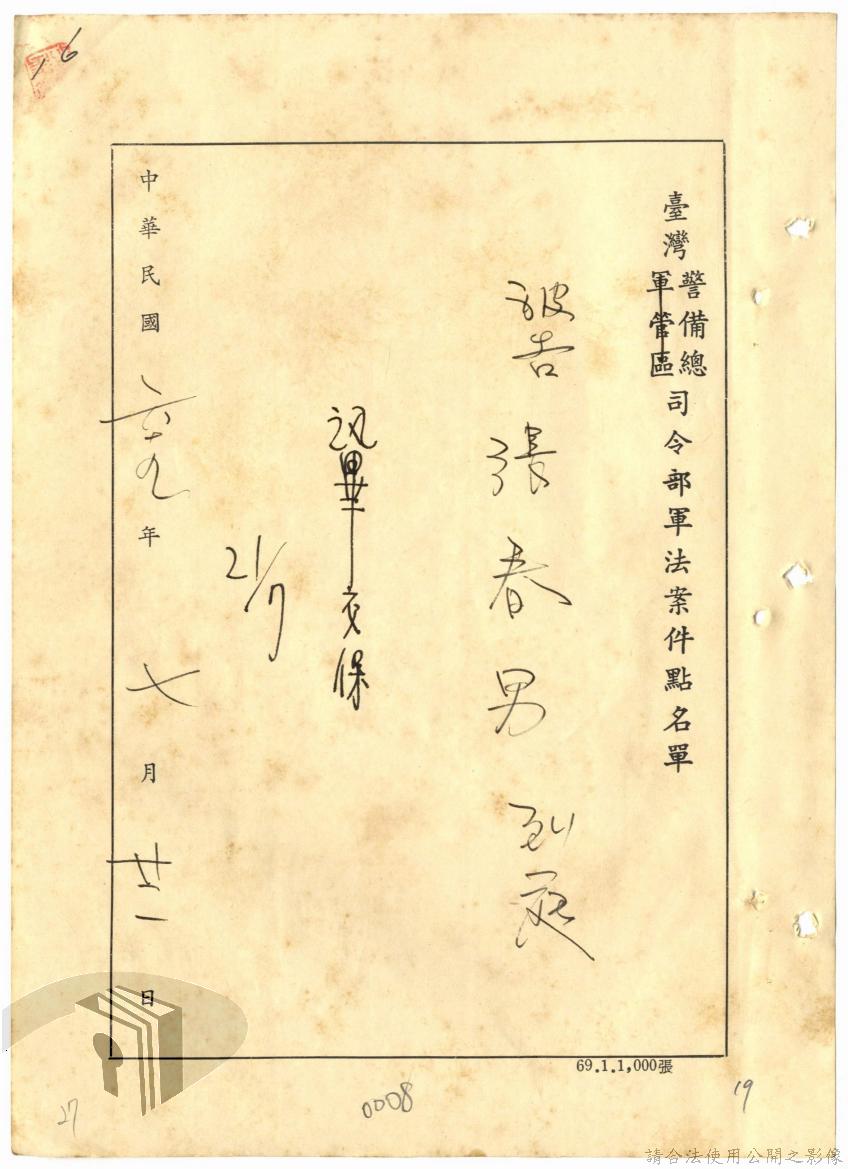 臺灣警備總軍管區司令部軍法案件點名單
被告 張春男 到庭
訊畢交保
21/7
中華民國六十九年七月廿一日
69.1.1,000張
16
27
0008
19
請合法使用公開之影像